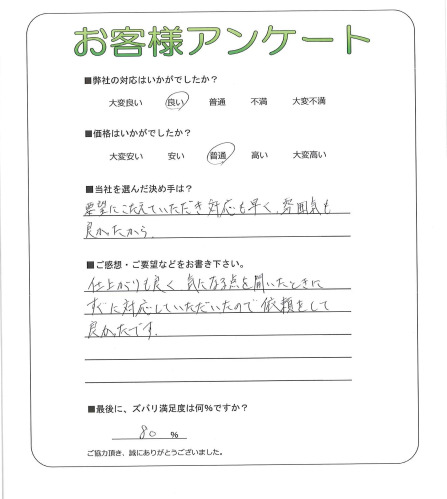 お客様アンケート
■弊社の対応はいかがでしたか?
大変良い 良い 普通 不満 大変不満
■価格はいかがでしたか?
大変安い 安い 普通 高い 大変高い
■当社を選んだ決め手は?
要望にこたえていただき対応も早く、雰囲気も
良かたから。
■ご感想・ご要望などをお書き下さい。
仕上がりも良く 気になる点を聞いたときに
すぐに対応していただいたので依頼をして
良かたです。
■最後に、ズバリ満足度は何%ですか?
80 %
ご協力頂き、誠にありがとうございました。